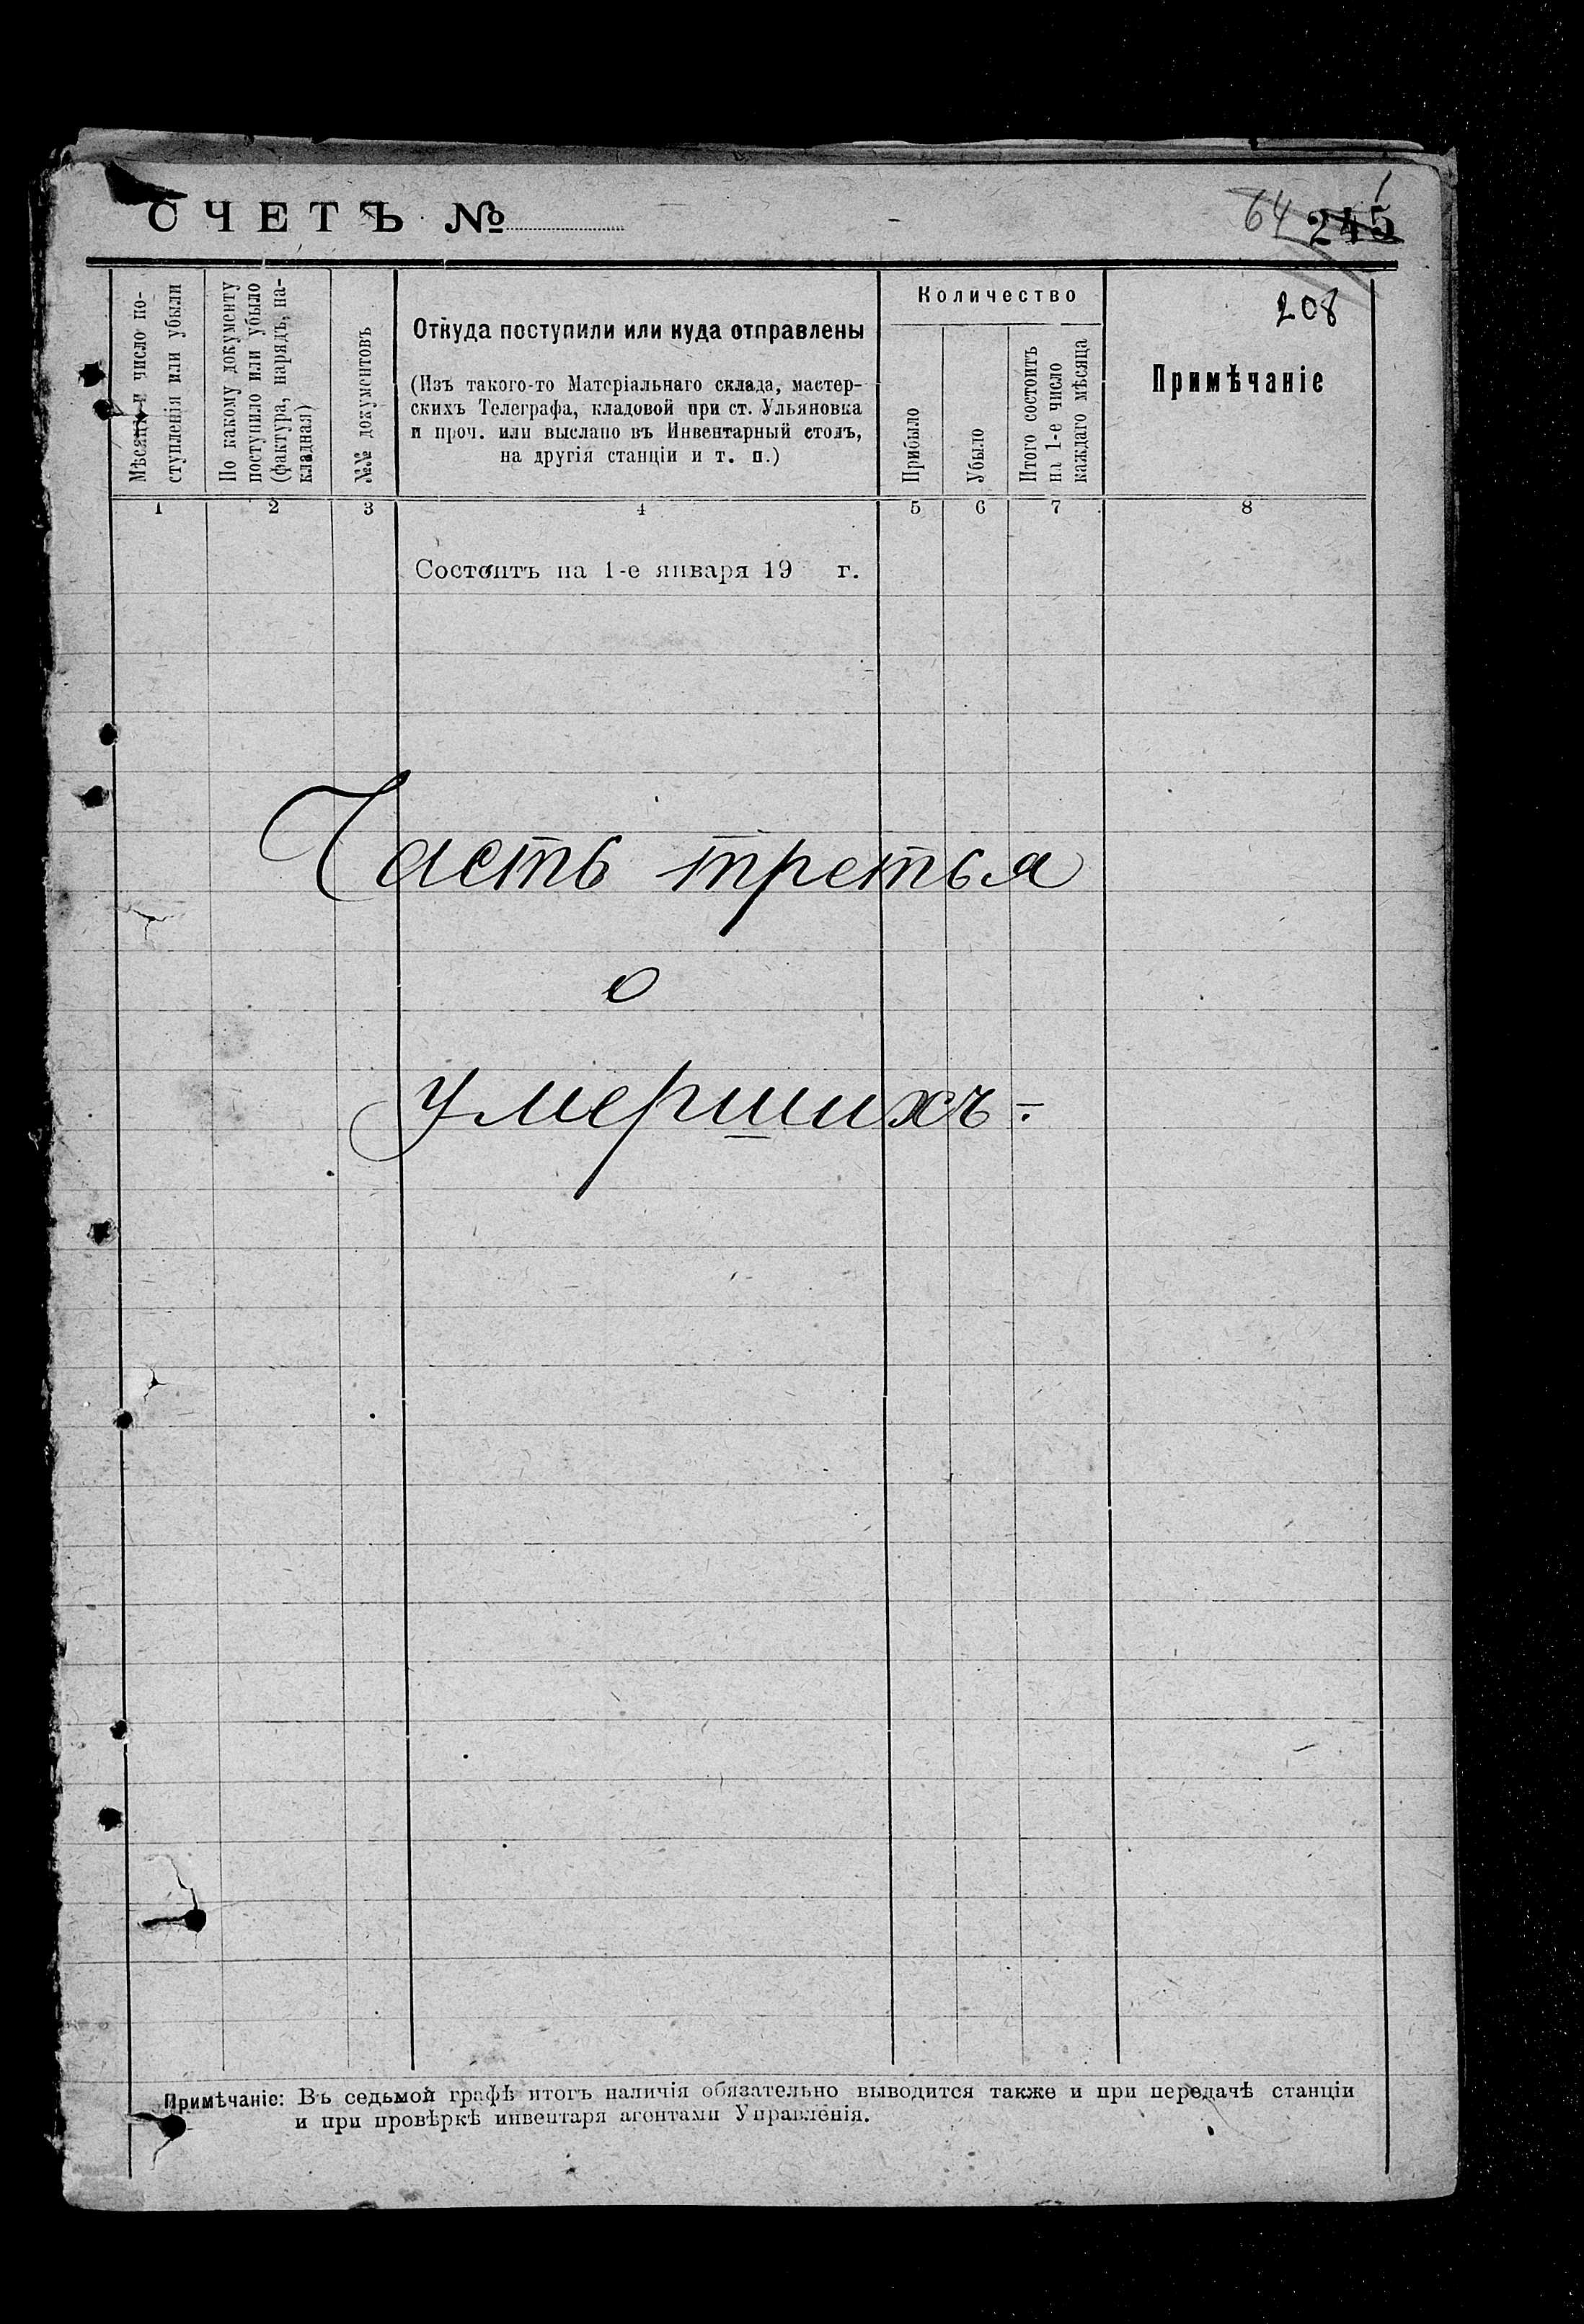 СЧЕТЪ №
64 245
1
208
Мѣсяцъ и число по-
ступленія или убыли
По какому документу
поступило или убыло
(фактура, нарядъ, на-
кладная)
№№ документовъ
Откуда поступили или куда отправлены
(Изъ такого-то Матеріальнаго склада, мастер-
скихъ Телеграфа, кладовой при ст. Ульяновка
и проч. или выслано въ Инвентарный столъ,
на другія станціи и т. п.)
Количество
Прибыло
Убыло
Итого состоитъ
на 1-е число
каждаго мѣсяца
Примѣчаніе
1 2 3 4 5 6 7 8
Состоитъ на 1-е января 19 г.
Часть третья
о
умершихъ
Примѣчаніе: Въ седьмой графѣ итогъ наличія обязательно выводится также и при передачѣ станціи
и при провѣркѣ инвентаря агентами Управленія.